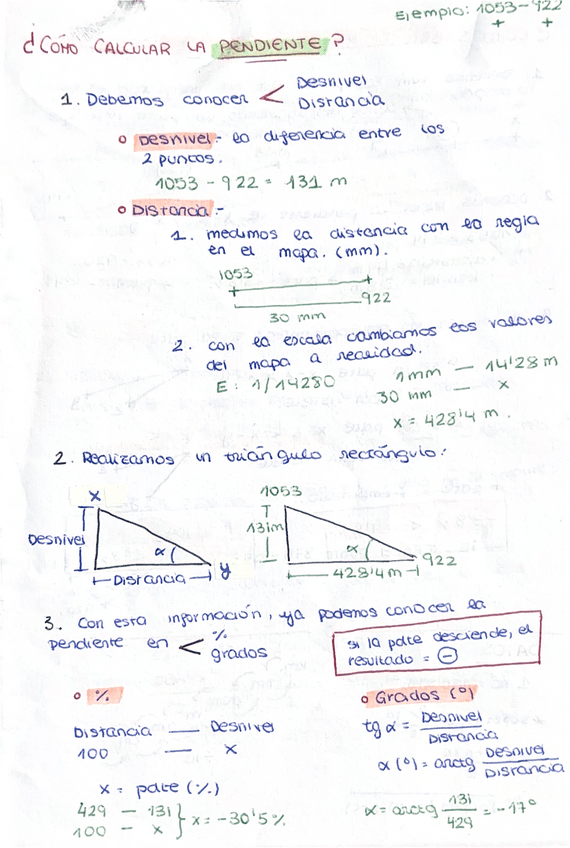 Ejemplo: 1053-922
+ +
¿CÓMO CALCULAR LA PENDIENTE?
1. Debemos conocer < Desnivel
Distancia
o Desnivel.- la diferencia entre los
2 puntos.
1053 - 922 = 131 m
o Distancia.-
1. medimos la distancia con la regla
en el mapa. (mm).
1053
+ +
922
30 mm
2. con la escala cambiamos los valores
del mapa a realidad.
E: 1/14280
1mm — 14'28m
30 mm — x
x = 428'4 m.
2. Realizamos un triángulo rectángulo:
x
Desnivel
α
Distancia
y
1053
131m
α
922
428'4m
3. Con esta información, ya podemos conocer la
pendiente en < %
grados
si la pdte desciende, el
resultado = -
o %
Distancia — Desnivel
100 — x
x = pdte (%)
429 — 131
100 — x } x = -30'5%
o Grados (°)
tg α = Desnivel
Distancia
α (°) = arctg Desnivel
Distancia
α = arctg 131
429 = -17°